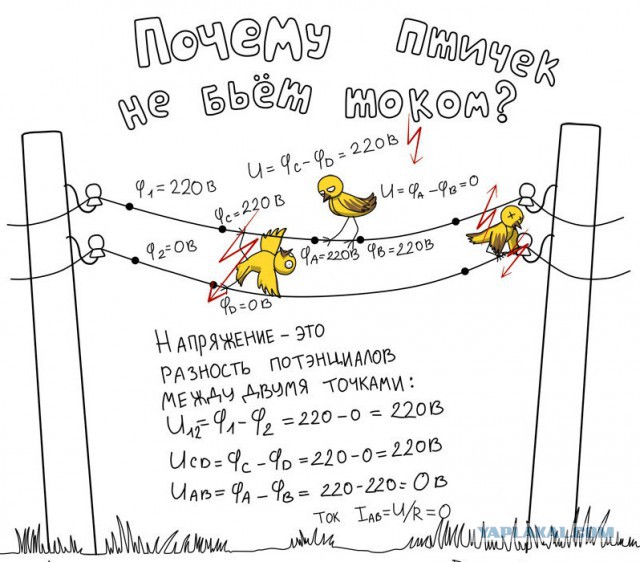 Почему птичек
не бьёт током?
U = φC - φD = 220 В
φ1 = 220 В
φC = 220 В
U = φA - φB = 0
φ2 = 0 В
φA = 220 В
φB = 220 В
φD = 0 В
Напряжение - это
разность потэнциалов
между двумя точками:
U12 = φ1 - φ2 = 220 - 0 = 220 В
UCD = φC - φD = 220 - 0 = 220 В
UAB = φA - φB = 220 - 220 = 0 В
ток IAB = U/R = 0
YAPLAKAL.COM